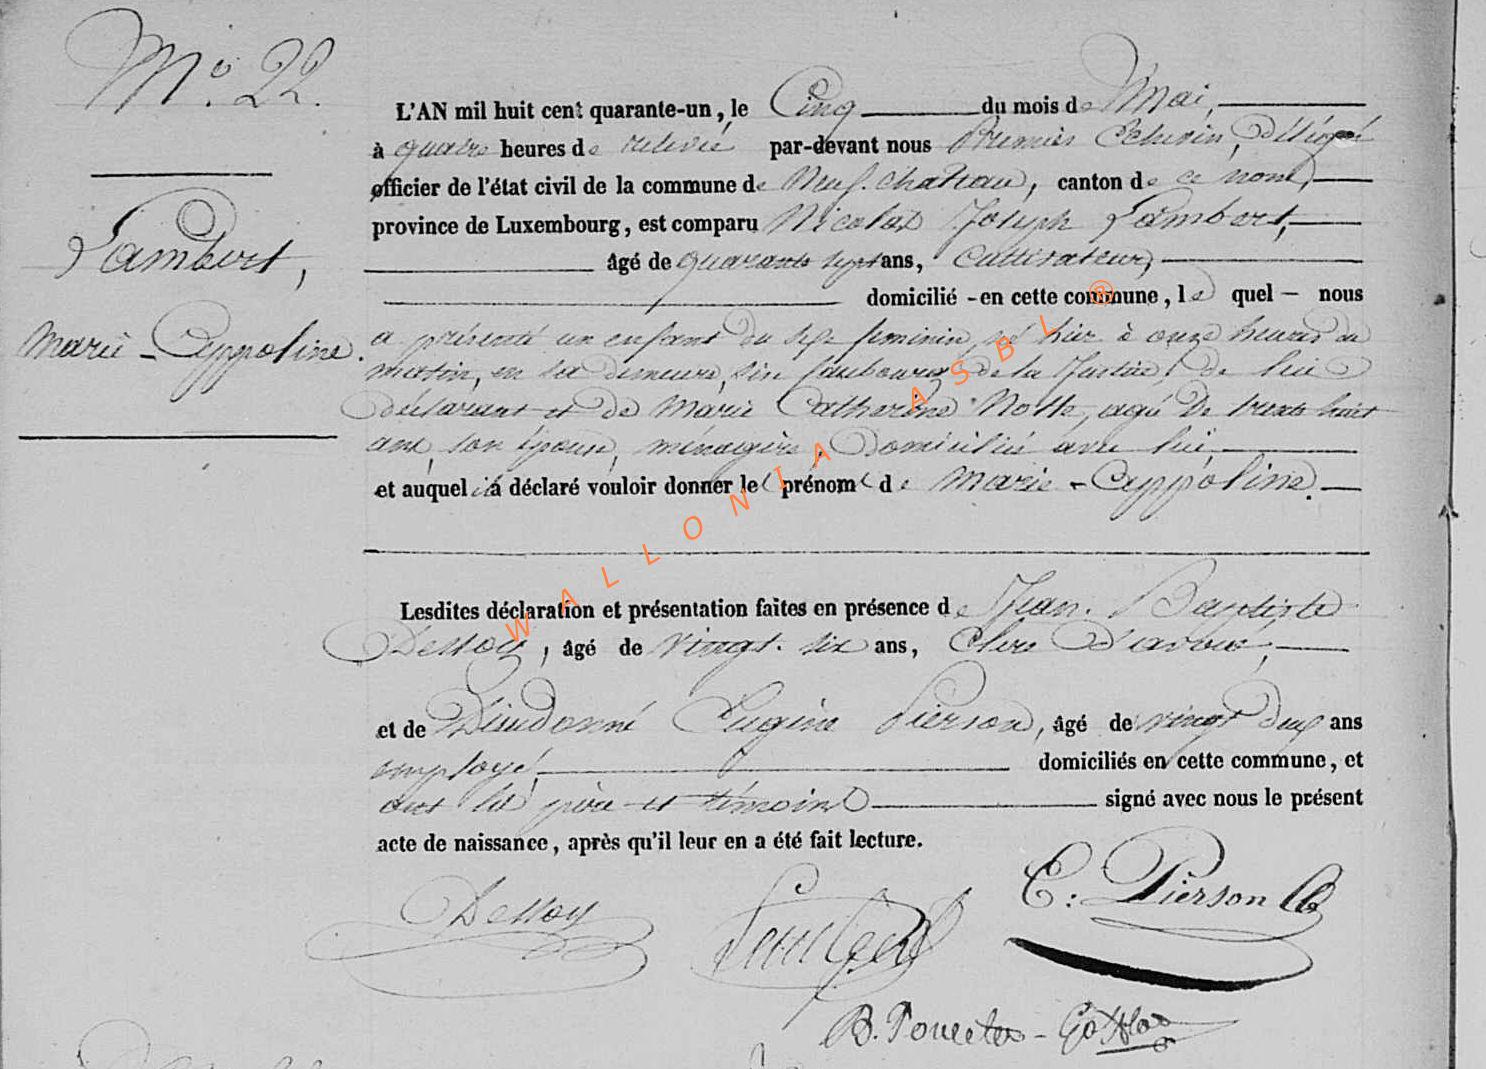 N.° 22.
Lambert,
Marie - Appoline.
L'AN mil huit cent quarante-un, le Cinq du mois de Mai,
à quatre heures de relevée par-devant nous Premier Echevin, Délégué
officier de l'état civil de la commune de Neufchateau, canton de ce nom,
province de Luxembourg, est comparu Nicolas Joseph Lambert,
âgé de quarante sept ans, Cultivateur,
domicilié - en cette commune, le quel - nous
a présenté un enfant du sexe feminin, né hier à onze heures du
matin, en sa demeure, sise faubourg de la Justice, de lui
déclarant et de Marie Catherine Nolle, agée de trente huit
ans, son épouse, ménagère, domiciliée avec lui,
et auquel il a déclaré vouloir donner le prénom de Marie - Appoline.
Lesdites déclaration et présentation faites en présence de Jean. Baptiste
Dessoy, âgé de vingt-six ans, Clerc d'avoué,
et de Dieudonné Eugène Pierson, âgé de vingt deux ans
employé, domiciliés en cette commune, et
ont les père et témoins signé avec nous le présent
acte de naissance, après qu'il leur en a été fait lecture.
Dessoy Lambert E: Pierson
B. Poncelet -
WALLONIA ASBL ®